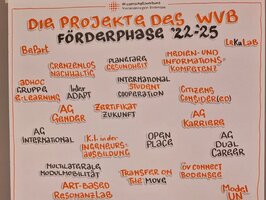 Wissenschaftsverbund
Vierländerregion Bodensee
DIE PROJEKTE DES WVB
FÖRDERPHASE '22-25
BePart
GRENZENLOS
NACHHALTIG
PLANETARE
GESUNDHEIT
MEDIEN- UND
INFORMATIONS-
KOMPETENZ
LeKaLAB
ADHOC
GRUPPE
E-LEARNING
INTER
ADAPT
INTERNATIONAL
STUDENT
COOPERATION
CITIZENS
CONSIDER(ED)
AG
GENDER
ZERTIFIKAT
ZUKUNFT
AG
KARRIERE
AG
INTERNATIONAL
K.I. in der
INGENIEURS-
AUSBILDUNG
OPEN
PLACE
AG
DUAL
CAREER
MULTILATERALE
MODULMOBILITÄT
TRANSFER ON
THE MOVE
ÖV CONNECT
BODENSEE
ART-BASED
RESONANZLAB
Model
UN